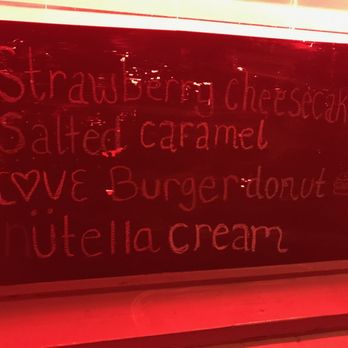 Strawberry cheesecak
Salted caramel
L♡VE Burger donut
nütella cream